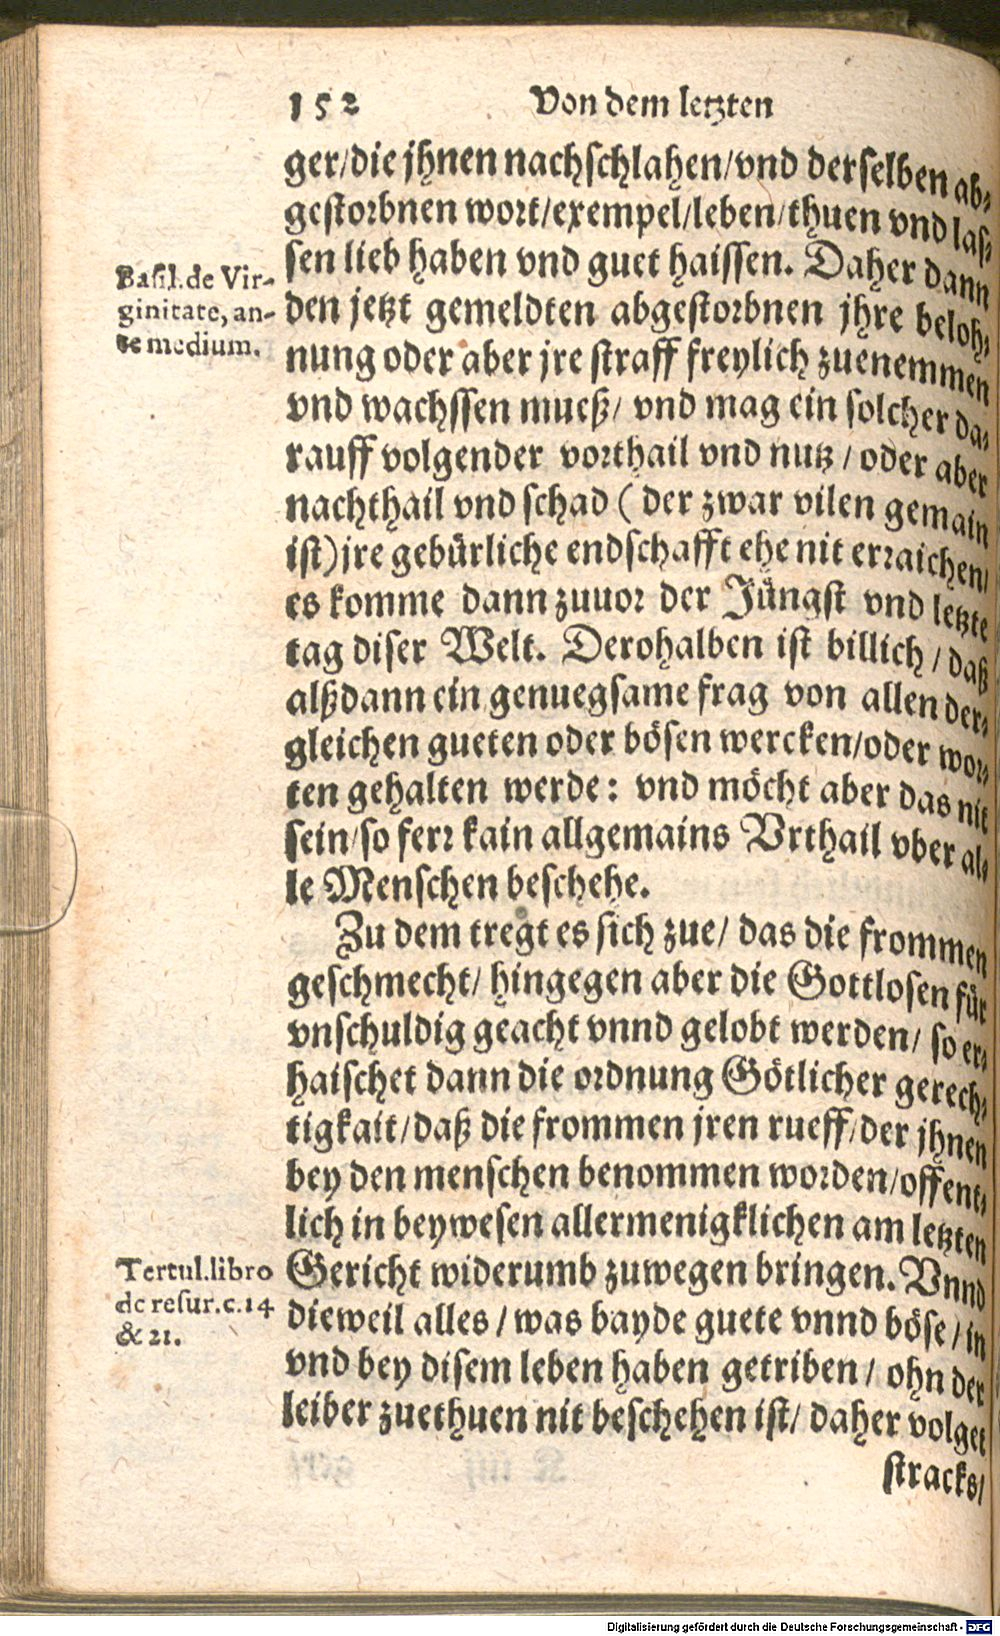 152 Von dem letzten
ger/die jhnen nachschlahen/vnd derselben ab-
gestorbnen wort/exempel/leben/thuen vnd las-
sen lieb haben vnd guet haissen. Daher dann
Basil. de Vir-
ginitate, an-
te medium.
den jetzt gemeldten abgestorbnen jhre beloh-
nung oder aber jre straff freylich zuenemmen
vnd wachssen mueß/ vnd mag ein solcher da-
rauff volgender vorthail vnd nutz / oder aber
nachthail vnd schad ( der zwar vilen gemain
ist) jre gebürliche endschafft ehe nit erraichen/
es komme dann zuuor der Jüngst vnd letzte
tag diser Welt. Derohalben ist billich / daß
alßdann ein genuegsame frag von allen der-
gleichen gueten oder bösen wercken/oder wor-
ten gehalten werde: vnd möcht aber das nit
sein/so ferr kain allgemains Vrthail vber al-
le Menschen beschehe.
Zu dem tregt es sich zue/ das die frommen
geschmecht/ hingegen aber die Gottlosen für
vnschuldig geacht vnnd gelobt werden/ so er-
haischet dann die ordnung Götlicher gerech-
tigkait/daß die frommen jren rueff/der jhnen
bey den menschen benommen worden/offent-
lich in beywesen allermenigklichen am letzten
Gericht widerumb zuwegen bringen. Vnnd
Tertul. libro
de resur. c. 14
& 21.
dieweil alles / was bayde guete vnnd böse / in
vnd bey disem leben haben getriben / ohn der
leiber zuethuen nit beschehen ist/ daher volget
stracks/
Digitalisierung gefördert durch die Deutsche Forschungsgemeinschaft - DFG